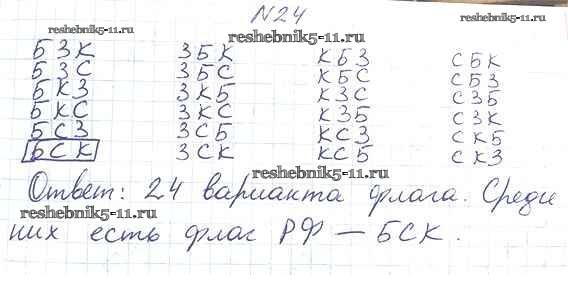 N24
reshebnik5-11.ru
БЗК ЗБК КБЗ СБК
БЗС ЗБС КБС СБЗ
БКЗ ЗКБ КЗС СЗБ
БКС ЗКС КЗБ СЗК
БСЗ ЗСБ КСЗ СКБ
БСК ЗСК КСБ СКЗ
reshebnik5-11.ru
reshebnik5-11.ru
reshebnik5-11.ru
Ответ: 24 варианта флага. Среди
reshebnik5-11.ru
них есть флаг РФ — БСК.